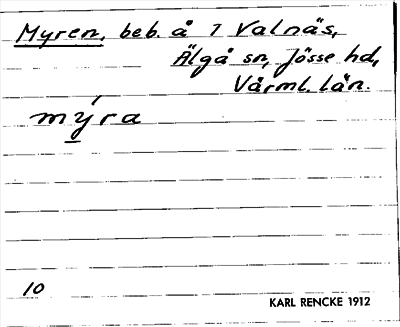 Myren, beb. å 1 Valnäs,
Älgå sn, Jösse hd,
Värml. län.
mýra
10
KARL RENCKE 1912